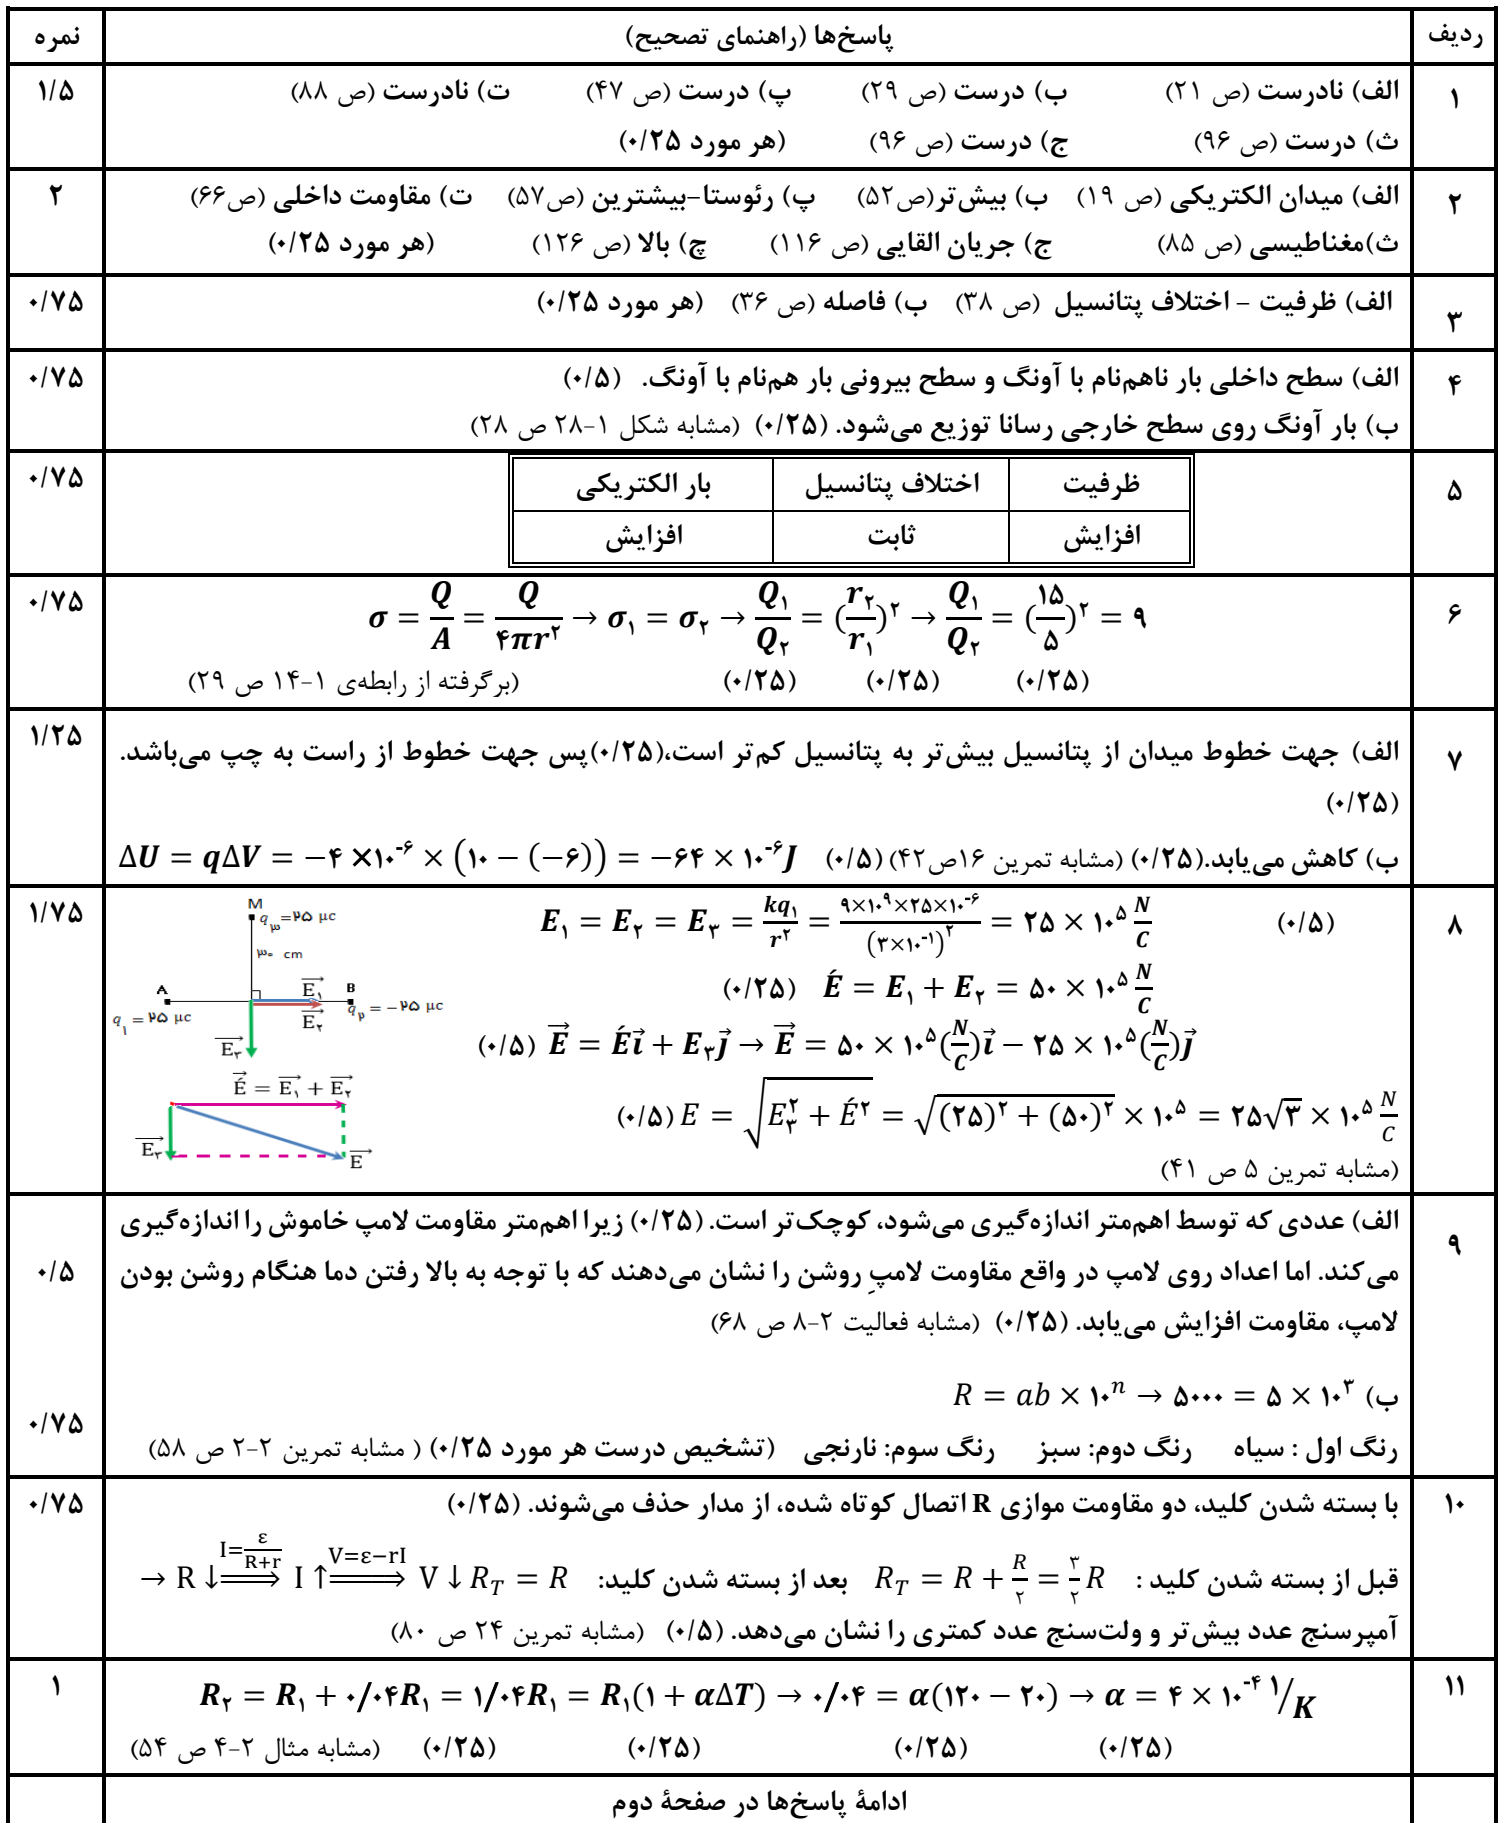 ردیف پاسخ‌ها (راهنمای تصحیح) نمره
۱ الف) نادرست (ص ۲۱) ب) درست (ص ۲۹) پ) درست (ص ۴۷) ت) نادرست (ص ۸۸) ۱/۵
ث) درست (ص ۹۶) ج) درست (ص ۹۶) (هر مورد ۰/۲۵)
۲ الف) میدان الکتریکی (ص ۱۹) ب) بیش‌تر(ص۵۲) پ) رئوستا-بیشترین (ص۵۷) ت) مقاومت داخلی (ص۶۶) ۲
ث)مغناطیسی (ص ۸۵) ج) جریان القایی (ص ۱۱۶) چ) بالا (ص ۱۲۶) (هر مورد ۰/۲۵)
۳ الف) ظرفیت - اختلاف پتانسیل (ص ۳۸) ب) فاصله (ص ۳۶) (هر مورد ۰/۲۵) ۰/۷۵
۴ الف) سطح داخلی بار ناهم‌نام با آونگ و سطح بیرونی بار هم‌نام با آونگ. (۰/۵) ۰/۷۵
ب) بار آونگ روی سطح خارجی رسانا توزیع می‌شود. (۰/۲۵) (مشابه شکل ۱-۲۸ ص ۲۸)
۵ ظرفیت اختلاف پتانسیل بار الکتریکی ۰/۷۵
افزایش ثابت افزایش
۶ σ = Q/A = Q/۴πr^۲ → σ_۱ = σ_۲ → Q_۱/Q_۲ = (r_۲/r_۱)^۲ → Q_۱/Q_۲ = (۱۵/۵)^۲ = ۹ ۰/۷۵
(۰/۲۵) (۰/۲۵) (۰/۲۵) (برگرفته از رابطه‌ی ۱-۱۴ ص ۲۹)
۷ الف) جهت خطوط میدان از پتانسیل بیش‌تر به پتانسیل کم‌تر است،(۰/۲۵)پس جهت خطوط از راست به چپ می‌باشد. ۱/۲۵
(۰/۲۵)
ب) کاهش می‌یابد.(۰/۲۵) (مشابه تمرین ۱۶ص۴۲) (۰/۵) ΔU = qΔV = −۴ ×۱۰^-۶ × (۱۰ − (−۶)) = −۶۴ × ۱۰^-۶ J
۸ E_۱ = E_۲ = E_۳ = kq_۱/r^۲ = ۹×۱۰^۹×۲۵×۱۰^-۶/(۳×۱۰^-۱)^۲ = ۲۵ × ۱۰^۵ N/C (۰/۵) ۱/۷۵
(۰/۲۵) É = E_۱ + E_۲ = ۵۰ × ۱۰^۵ N/C
(۰/۵) E⃗ = É i⃗ + E_۳ j⃗ → E⃗ = ۵۰ × ۱۰^۵(N/C) i⃗ − ۲۵ × ۱۰^۵(N/C) j⃗
(۰/۵) E = √(E_۳^۲ + É^۲) = √((۲۵)^۲ + (۵۰)^۲) × ۱۰^۵ = ۲۵√۳ × ۱۰^۵ N/C
(مشابه تمرین ۵ ص ۴۱)
M
q_۳ = ۲۵ μc
۳۰ cm
A E⃗_۱ B
q_۱ = ۲۵ μc E⃗_۲ q_۲ = −۲۵ μc
E⃗_۳
É⃗ = E⃗_۱ + E⃗_۲
E⃗_۳ E⃗
۹ الف) عددی که توسط اهم‌متر اندازه‌گیری می‌شود، کوچک‌تر است. (۰/۲۵) زیرا اهم‌متر مقاومت لامپ خاموش را اندازه‌گیری
می‌کند. اما اعداد روی لامپ در واقع مقاومت لامپِ روشن را نشان می‌دهند که با توجه به بالا رفتن دما هنگام روشن بودن ۰/۵
لامپ، مقاومت افزایش می‌یابد. (۰/۲۵) (مشابه فعالیت ۲-۸ ص ۶۸)
ب) R = ab × ۱۰^n → ۵۰۰۰ = ۵ × ۱۰^۳
رنگ اول : سیاه رنگ دوم: سبز رنگ سوم: نارنجی (تشخیص درست هر مورد ۰/۲۵) ( مشابه تمرین ۲-۲ ص ۵۸) ۰/۷۵
۱۰ با بسته شدن کلید، دو مقاومت موازی R اتصال کوتاه شده، از مدار حذف می‌شوند. (۰/۲۵) ۰/۷۵
قبل از بسته شدن کلید : R_T = R + R/۲ = ۳/۲ R بعد از بسته شدن کلید: R_T = R → R ↓ ⟹(I=ε/(R+r)) I ↑ ⟹(V=ε−rI) V ↓
آمپرسنج عدد بیش‌تر و ولت‌سنج عدد کمتری را نشان می‌دهد. (۰/۵) (مشابه تمرین ۲۴ ص ۸۰)
۱۱ R_۲ = R_۱ + ۰/۰۴R_۱ = ۱/۰۴R_۱ = R_۱(۱ + αΔT) → ۰/۰۴ = α(۱۲۰ − ۲۰) → α = ۴ × ۱۰^-۴ ۱/K ۱
(۰/۲۵) (۰/۲۵) (۰/۲۵) (۰/۲۵) (مشابه مثال ۲-۴ ص ۵۴)
ادامهٔ پاسخ‌ها در صفحهٔ دوم